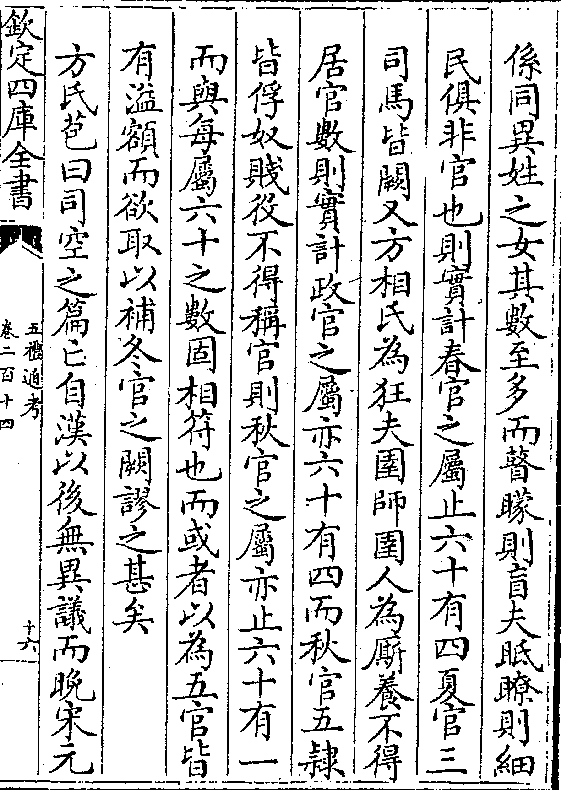 係同異姓之女其數至多而瞽矇則盲夫眂瞭則細
民俱非官也則實計春官之屬止六十有四夏官三
司馬皆闕又方相氏為狂夫圉師圉人為厮養不得
居官數則實計政官之屬亦六十有四而秋官五隸
皆俘奴賤役不得稱官則秋官之屬亦止六十有一
而與每屬六十之數固相符也而或者以為五官皆
有溢額而欲取以補冬官之闕謬之甚矣
方氏苞曰司空之篇亡自漢以後無異議而晚宋元
欽定四庫全書
五禮通考
卷二百十四
十六